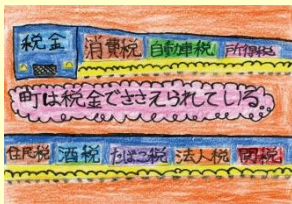 税金 消費税 自動車税 所得税
町は税金でささえられている。
住民税 酒税 たばこ税 法人税 関税